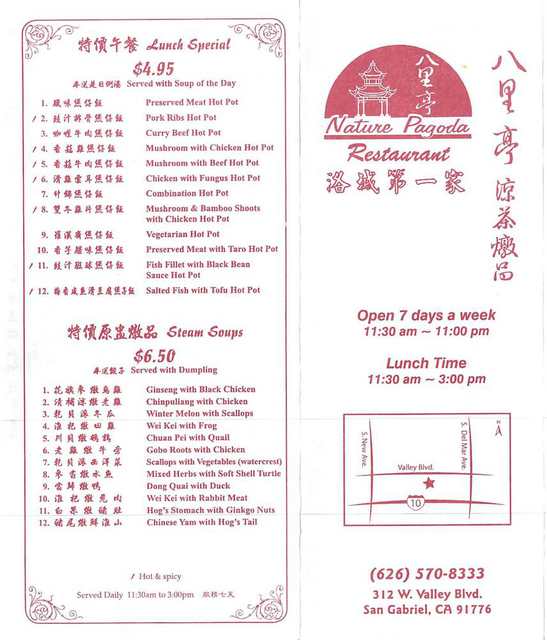 特價午餐 Lunch Special
$4.95
奉送是日例湯 Served with Soup of the Day
1. 臘味煲仔飯 Preserved Meat Hot Pot
/ 2. 豉汁排骨煲仔飯 Pork Ribs Hot Pot
3. 咖喱牛肉煲仔飯 Curry Beef Hot Pot
/ 4. 香菇雞煲仔飯 Mushroom with Chicken Hot Pot
/ 5. 香菇牛肉煲仔飯 Mushroom with Beef Hot Pot
/ 6. 滑雞雲耳煲仔飯 Chicken with Fungus Hot Pot
7. 什錦煲仔飯 Combination Hot Pot
/ 8. 雙冬雞片煲仔飯 Mushroom & Bamboo Shoots
with Chicken Hot Pot
9. 羅漢齋煲仔飯 Vegetarian Hot Pot
10. 香芋臘味煲仔飯 Preserved Meat with Taro Hot Pot
/ 11. 豉汁班球煲仔飯 Fish Fillet with Black Bean
Sauce Hot Pot
/ 12. 梅香咸魚滑豆腐煲仔飯 Salted Fish with Tofu Hot Pot
特價原盅燉品 Steam Soups
$6.50
奉送餃子 Served with Dumpling
1. 花旗參燉烏雞 Ginseng with Black Chicken
2. 清補涼燉老雞 Chinpuliang with Chicken
3. 乾貝源冬瓜 Winter Melon with Scallops
4. 淮杞燉田雞 Wei Kei with Frog
5. 川貝燉鵪鶉 Chuan Pei with Quail
6. 老雞燉牛蒡 Gobo Roots with Chicken
7. 乾貝源西洋菜 Scallops with Vegetables (watercrest)
8. 參茸燉水魚 Mixed Herbs with Soft Shell Turtle
9. 當歸燉鴨 Dong Quai with Duck
10. 淮杞燉兔肉 Wei Kei with Rabbit Meat
11. 白果燉豬肚 Hog's Stomach with Ginkgo Nuts
12. 豬尾燉鮮淮山 Chinese Yam with Hog's Tail
/ Hot & spicy
Served Daily 11:30am to 3:00pm 服務七天
八里亭
Nature Pagoda
Restaurant
洛城第一家
八里亭 涼茶燉品
Open 7 days a week
11:30 am ~ 11:00 pm
Lunch Time
11:30 am ~ 3:00 pm
S. New Ave.
Valley Blvd.
S. Del Mar Ave.
N
10
(626) 570-8333
312 W. Valley Blvd.
San Gabriel, CA 91776